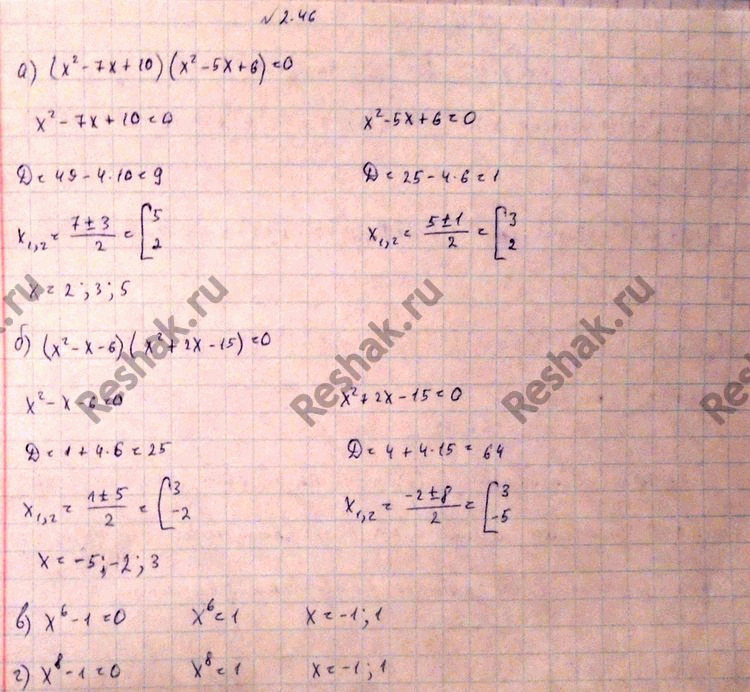 № 2.46
а) (x² - 7x + 10)(x² - 5x + 6) = 0
x² - 7x + 10 = 0    x² - 5x + 6 = 0
D = 49 - 4·10 = 9    D = 25 - 4·6 = 1
x₁,₂ = (7 ± 3)/2 = [5 2    x₁,₂ = (5 ± 1)/2 = [3 2
x = 2; 3; 5
б) (x² - x - 6)(x² + 2x - 15) = 0
x² - x - 6 = 0    x² + 2x - 15 = 0
D = 1 + 4·6 = 25    D = 4 + 4·15 = 64
x₁,₂ = (1 ± 5)/2 = [3 -2    x₁,₂ = (-2 ± 8)/2 = [3 -5
x = -5; -2; 3
в) x⁶ - 1 = 0    x⁶ = 1    x = -1; 1
г) x⁸ - 1 = 0    x⁸ = 1    x = -1; 1
Reshak.ru
Reshak.ru
Reshak.ru